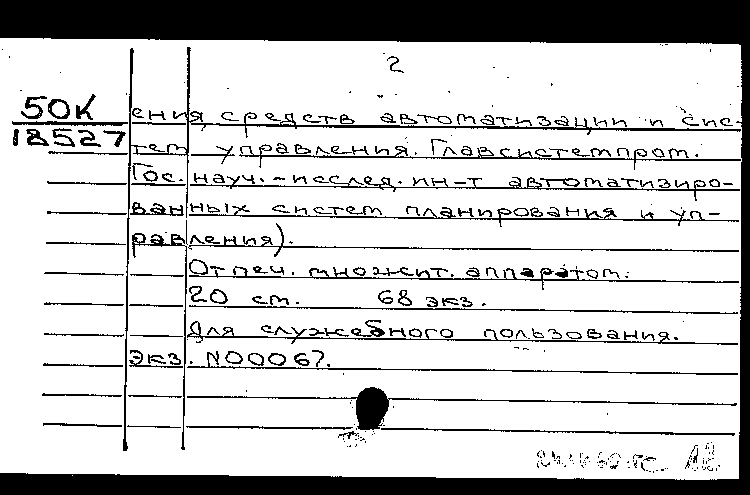 2
50К
18527
ения, средств автоматизации и сис-
тем управления. Главсистемпром.
Гос. науч.-исслед. ин-т автоматизиро-
ванных систем планирования и уп-
равления).
Отпеч. множит. аппаратом.
20 см. 68 экз.
Для служебного пользования.
Экз. N00067.